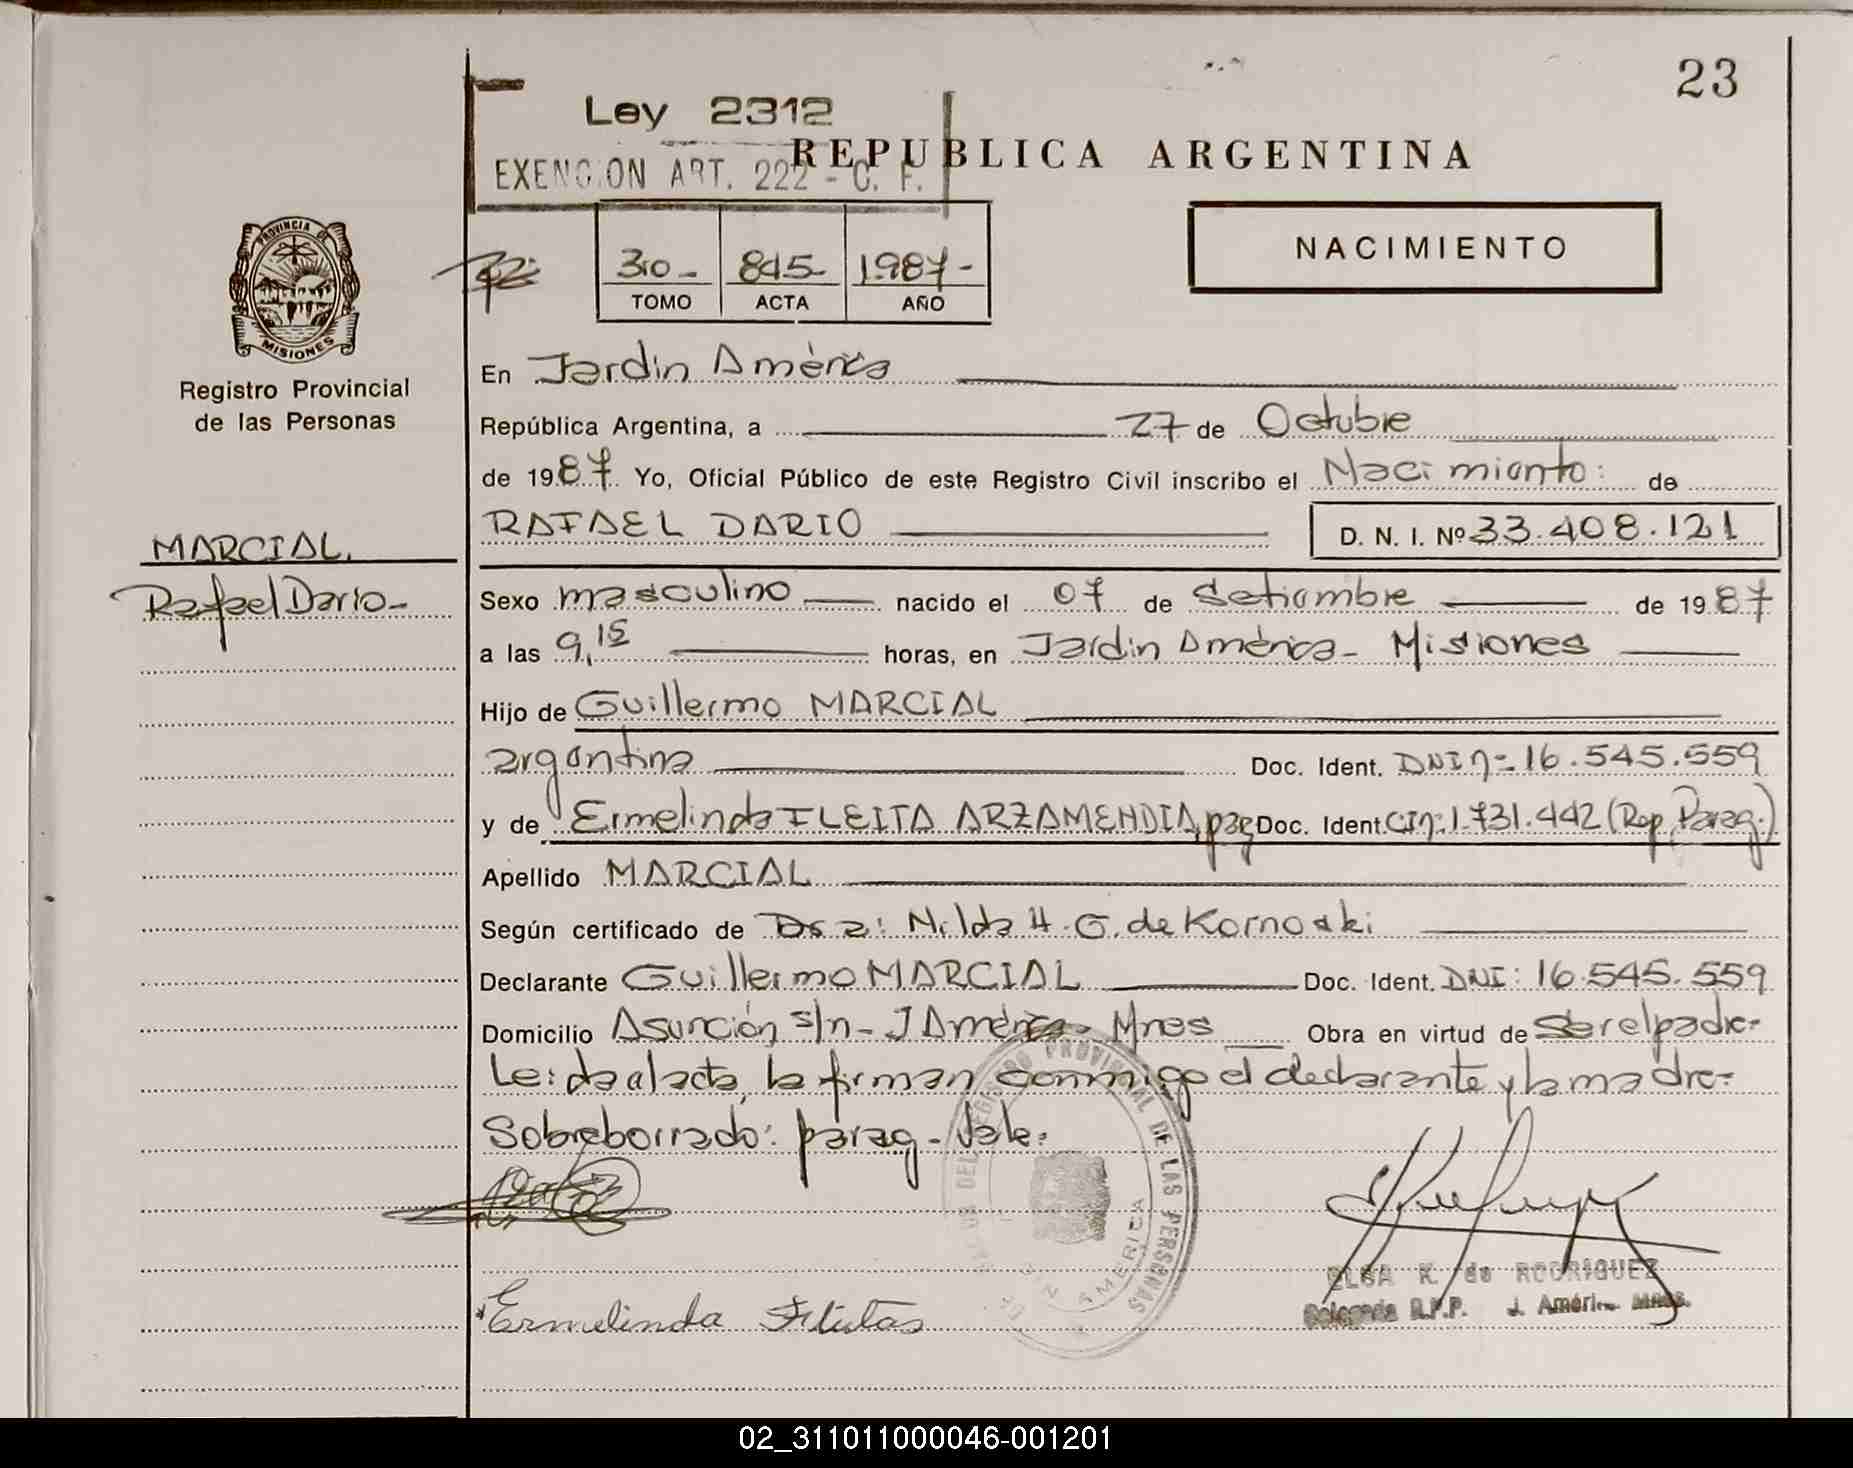 23
Ley 2312
REPUBLICA ARGENTINA
EXENCION ART. 222 - C. F.
NACIMIENTO
3ro - 845- 1987-
TOMO ACTA AÑO
PROVINCIA DE
MISIONES
Registro Provincial
de las Personas
MARCIAL.
Rafael Dario-
En Jardin América
República Argentina, a 27 de Octubre
de 1987 Yo, Oficial Público de este Registro Civil inscribo el Nacimiento: de
RAFAEL DARIO D. N. I. Nº 33.408.121
Sexo masculino nacido el 07 de Setiembre de 1987
a las 9,15 horas, en Jardin América - Misiones
Hijo de Guillermo MARCIAL
argentina Doc. Ident. DNI nº 16.545.559
y de Ermelinda FLEITA ARZAMENDIA, parag Doc. Ident. CI nº 1.731.442 (Rep. Parag.)
Apellido MARCIAL
Según certificado de Dra: Nilda H. G. de Kornoski
Declarante Guillermo MARCIAL Doc. Ident. DNI: 16.545.559
Domicilio Asunción s/n - J América - Mnes Obra en virtud de Ser el padre-
Leida el acta, la firman conmigo el declarante y la madre-
Sobreborrado: parag - Vale.
REGISTRO PROVINCIAL DE LAS PERSONAS
AMERICA
ELSA K. de RODRIGUEZ
Delegada R.P.P. J. América MNES.
Ermelinda Fleitas
02_311011000046-001201